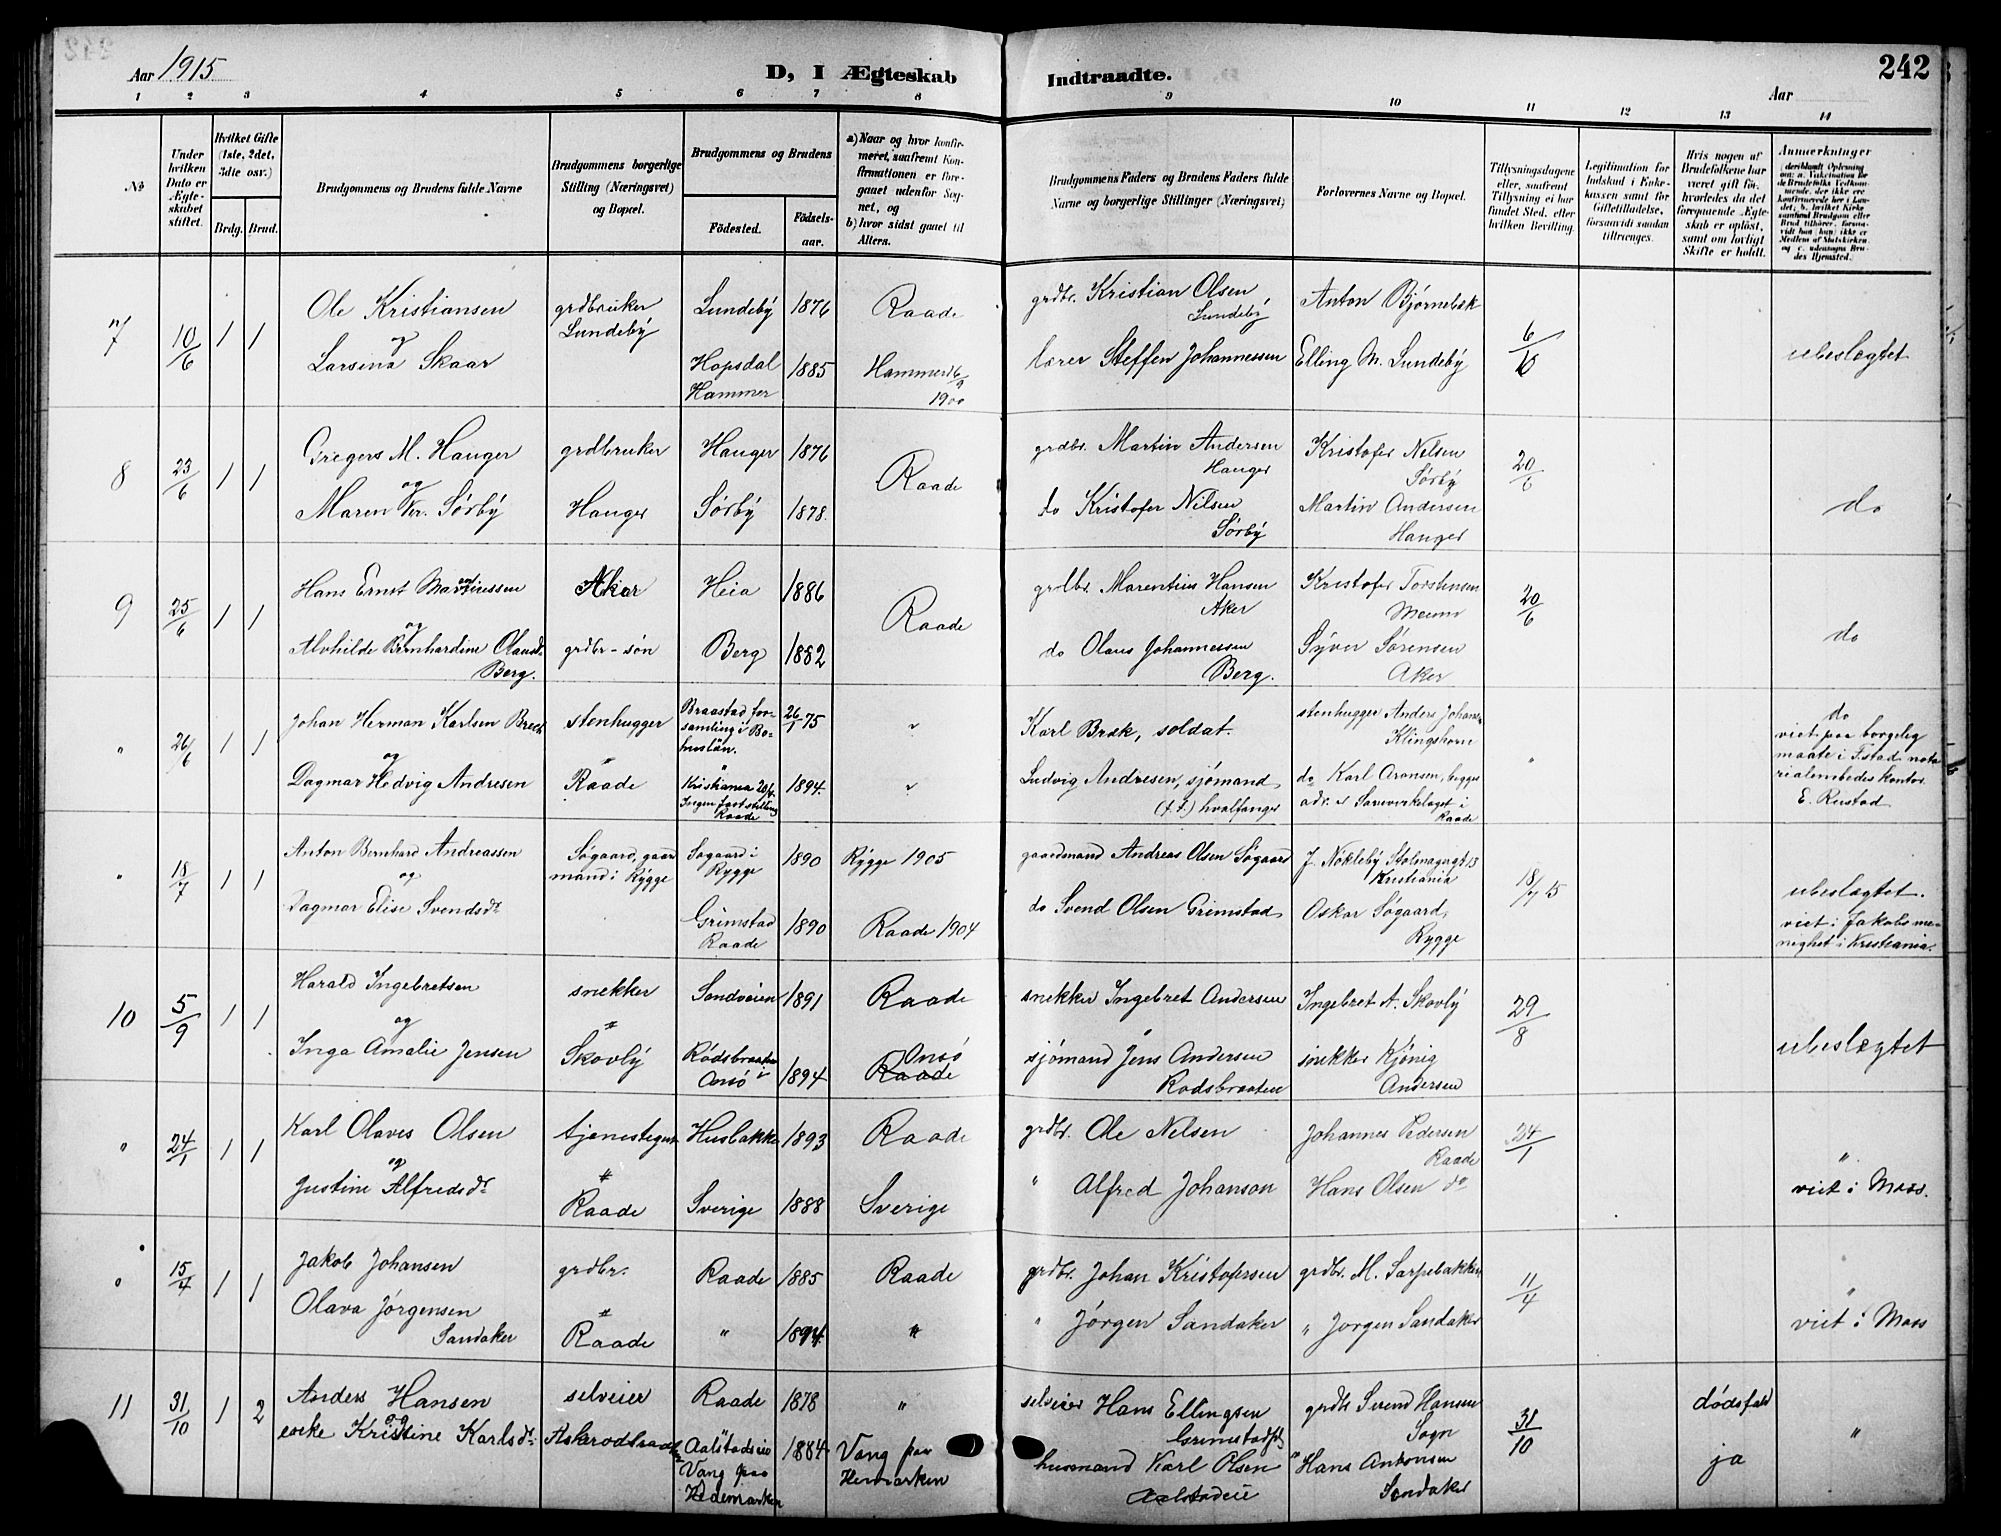 242
Aar 1915
D, I Ægteskab Indtraadte.
Aar
1 2 3 4 5 6 7 8 9 10 11 12 13 14
No
Under hvilken Dato er Ægteskabet stiftet.
Hvilket Gifte (1ste, 2det, 3die osv.)
Brdg. Brud.
Brudgommens og Brudens fulde Navne
Brudgommens borgerlige Stilling (Næringsvei) og Bopæl.
Brudgommens og Brudens
Födested. Födselsaar.
a) Naar og hvor konfirmeret, saafremt Konfirmationen er foregaaet udenfor Sognet, og
b) hvor sidst gaaet til Alters.
Brudgommens Faders og Brudens Faders fulde Navne og borgerlige Stillinger (Næringsvei)
Forlovernes Navne og Bopæl.
Tillysningsdagene eller, saafremt Tillysning ei har fundet Sted, efter hvilken Bevilling.
Legitimation for Indskud i Enkekassen samt for Giftetilladelse, forsaavidt saadan tiltrænges.
Hvis nogen af Brudefolkene har været gift för, hvorledes da det foregaaende Ægteskab er oplöst, samt om lovligt Skifte er holdt.
Anmærkninger
7 10/6 1 1 Ole Kristiansen og grdbruker Lundeby Lundeby 1876 Raade grdbr. Kristian Olsen Lundeby Anton Bjørnebæk 6/6 ubeslægtet
Larsina Skaar Hopsdal Hammer 1885 Hammer 1900 lærer Steffen Johannessen Elling M. Lundeby
8 23/6 1 1 Gregers M. Hauger og grdbruker Hauger 1876 Raade grdbr. Martin Andersen Hauger Kristofer Nilsen Sørby 20/6 do
Maren Kr. Sørby Hauger Sørby 1878. do Kristofer Nilsen Sørby Martin Andersen Hauger
9 25/6 1 1 Hans Ernst Martinissen og Aker Heia 1886 Raade grdbr. Marentius Hansen Aker Kristofer Torstensen 20/6 do
Alvhilde Bernhardine Olausd. Berg. grdbr-søn Berg 1882 do Olaus Johannessen Berg. Syver Sørensen Aker
" 26/6 1 1 Johan Herman Karlsen Bræk og stenhugger Braastad forsamling i Bohuslän. 26/1 75 " Karl Bræk, soldat. stenhugger Anders Johansen Klingshorn " do viet paa borgelig maate i F.stad notarialembedes kontor E. Rustad
Dagmar Hedvig Andresen Raade Kristiania 20/4. Ingen fast stilling Raade 1894. " Ludvig Andresen, sjömand (f.t.) hvalfanger do Karl Aronsen, begges adr. er Samvirkelaget i Raade
" 18/7 1 1 Anton Bernhard Andreassen og Søgaard, gaardmand i Rygge Søgaard i Rygge 1890 Rygge 1905 gaardmand Andreas Olsen Søgaard J. Nökleby Kristiania 18/7 15 ubeslægtet. viet i Jakobs menighet i Kristiania.
Dagmar Elise Svendsdr. Grimstad Raade 1890 Raade 1904 do Svend Olsen Grimstad Oskar Søgaard, Rygge
10 5/9 1 1 Harald Ingebretsen og snekker Sandveien 1891 Raade snekker Ingebret Andersen Ingebret A. Skovly 29/8 ubeslægtet
Inga Amalie Jensen Skovly Rödsbraaten i Onsö 1894 Onsö Raade sjömand Jens Andersen Rödsbraaten snekker Kjönig Andersen
" 24/1 1 1 Karl Olaves Olsen og tjenestegut Husbakke 1893 Raade grdbr. Ole Nelsen Johannes Pedersen Raade 24/1 " viet i Moss.
Justine Alfredsdr. Raade Sverige 1888 Sverige " Alfred Johanson Hans Olsen do
" 15/4 1 1 Jakob Johansen grdbr. Raade 1885 Raade grdbr. Johan Kristofersen grdbr. M. Sarpebakken 11/4 " viet i Moss
Olava Jørgensen Sandaker Raade " 1894. " " Jørgen Sandaker " Jørgen Sandaker
11 31/10 1 2 Anders Hansen og selveier Raade 1878 " selveier Hans Ellingsen Grimstadpl. grdbr Svend Hansen Sogn 31/10 dödsfald "
enke Kristine Karlsdr. Aalstadeie Vang paa Hedemarken 1884 Vang paa Hemarken husmand Karl Olsen Aalstadeie " Hans Antonsen Sandaker ja